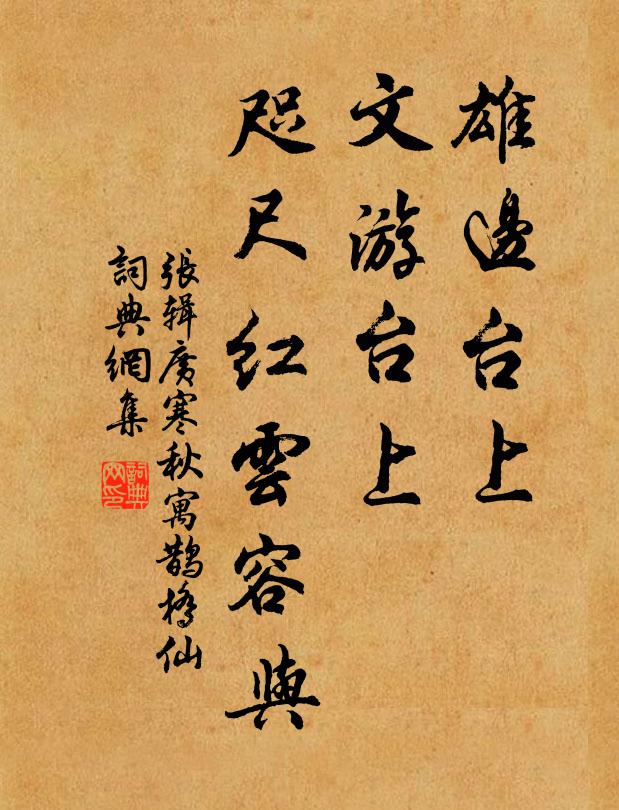 雄邊台上
文游台上
咫尺紅雲容與
張辑廣寒秋寓鵲橋仙
詞典網集
詞典网印